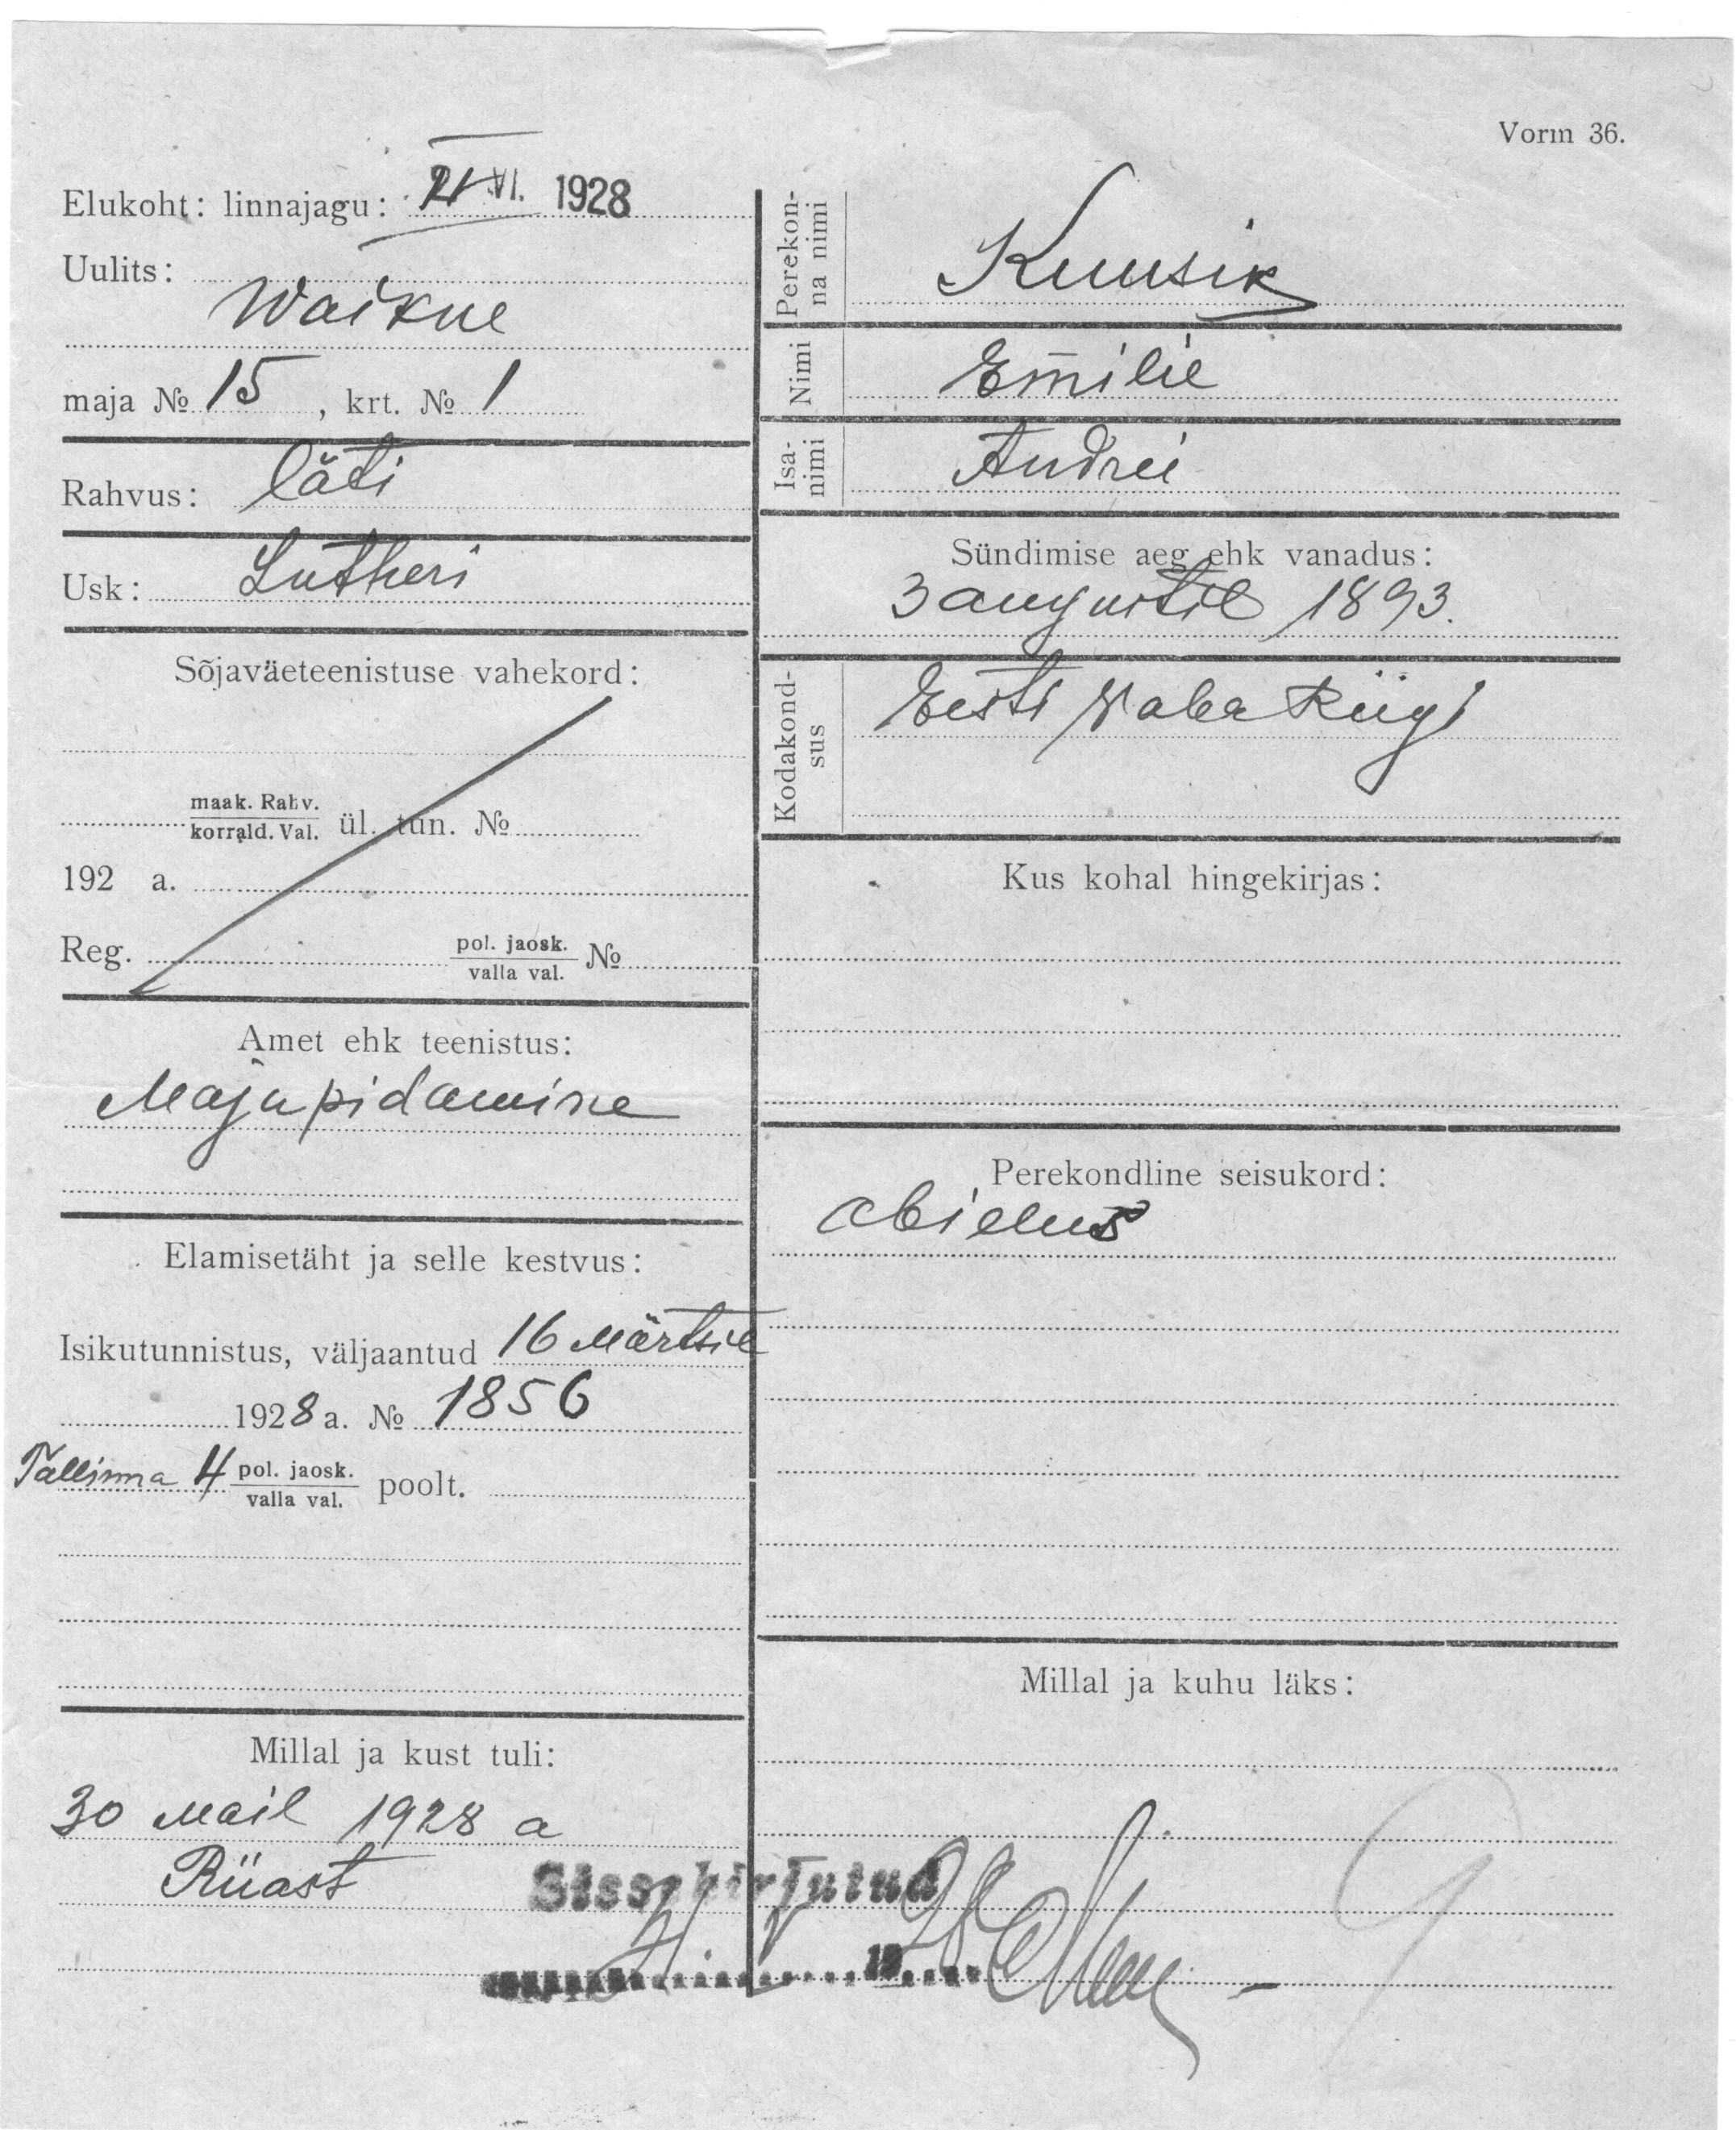 Vorm 36.
Elukoht: linnajagu: VI. 1928
Uulits:
Waikne
maja № 15, krt. № 1
Rahvus: läti
Usk: Lutheri
Sõjaväeteenistuse vahekord:
maak. Rahv.
korrald. Val. ül. tun. №
192 a.
Reg. pol. jaosk.
valla val. №
Amet ehk teenistus:
Majapidamine
Elamisetäht ja selle kestvus:
Isikutunnistus, väljaantud 16 Märtsil
1928 a. № 1856
Tallinna 4 pol. jaosk.
valla val. poolt.
Millal ja kust tuli:
30 Mail 1928 a
Riiast
Perekon-
na nimi
Kuusik
Nimi
Emilie
Isa-
nimi
Andrei
Sündimise aeg ehk vanadus:
3 augustil 1893.
Kodakond-
sus
Eesti Waba Riigi
Kus kohal hingekirjas:
Perekondline seisukord:
abielus
Millal ja kuhu läks:
Sissekirjutud
19